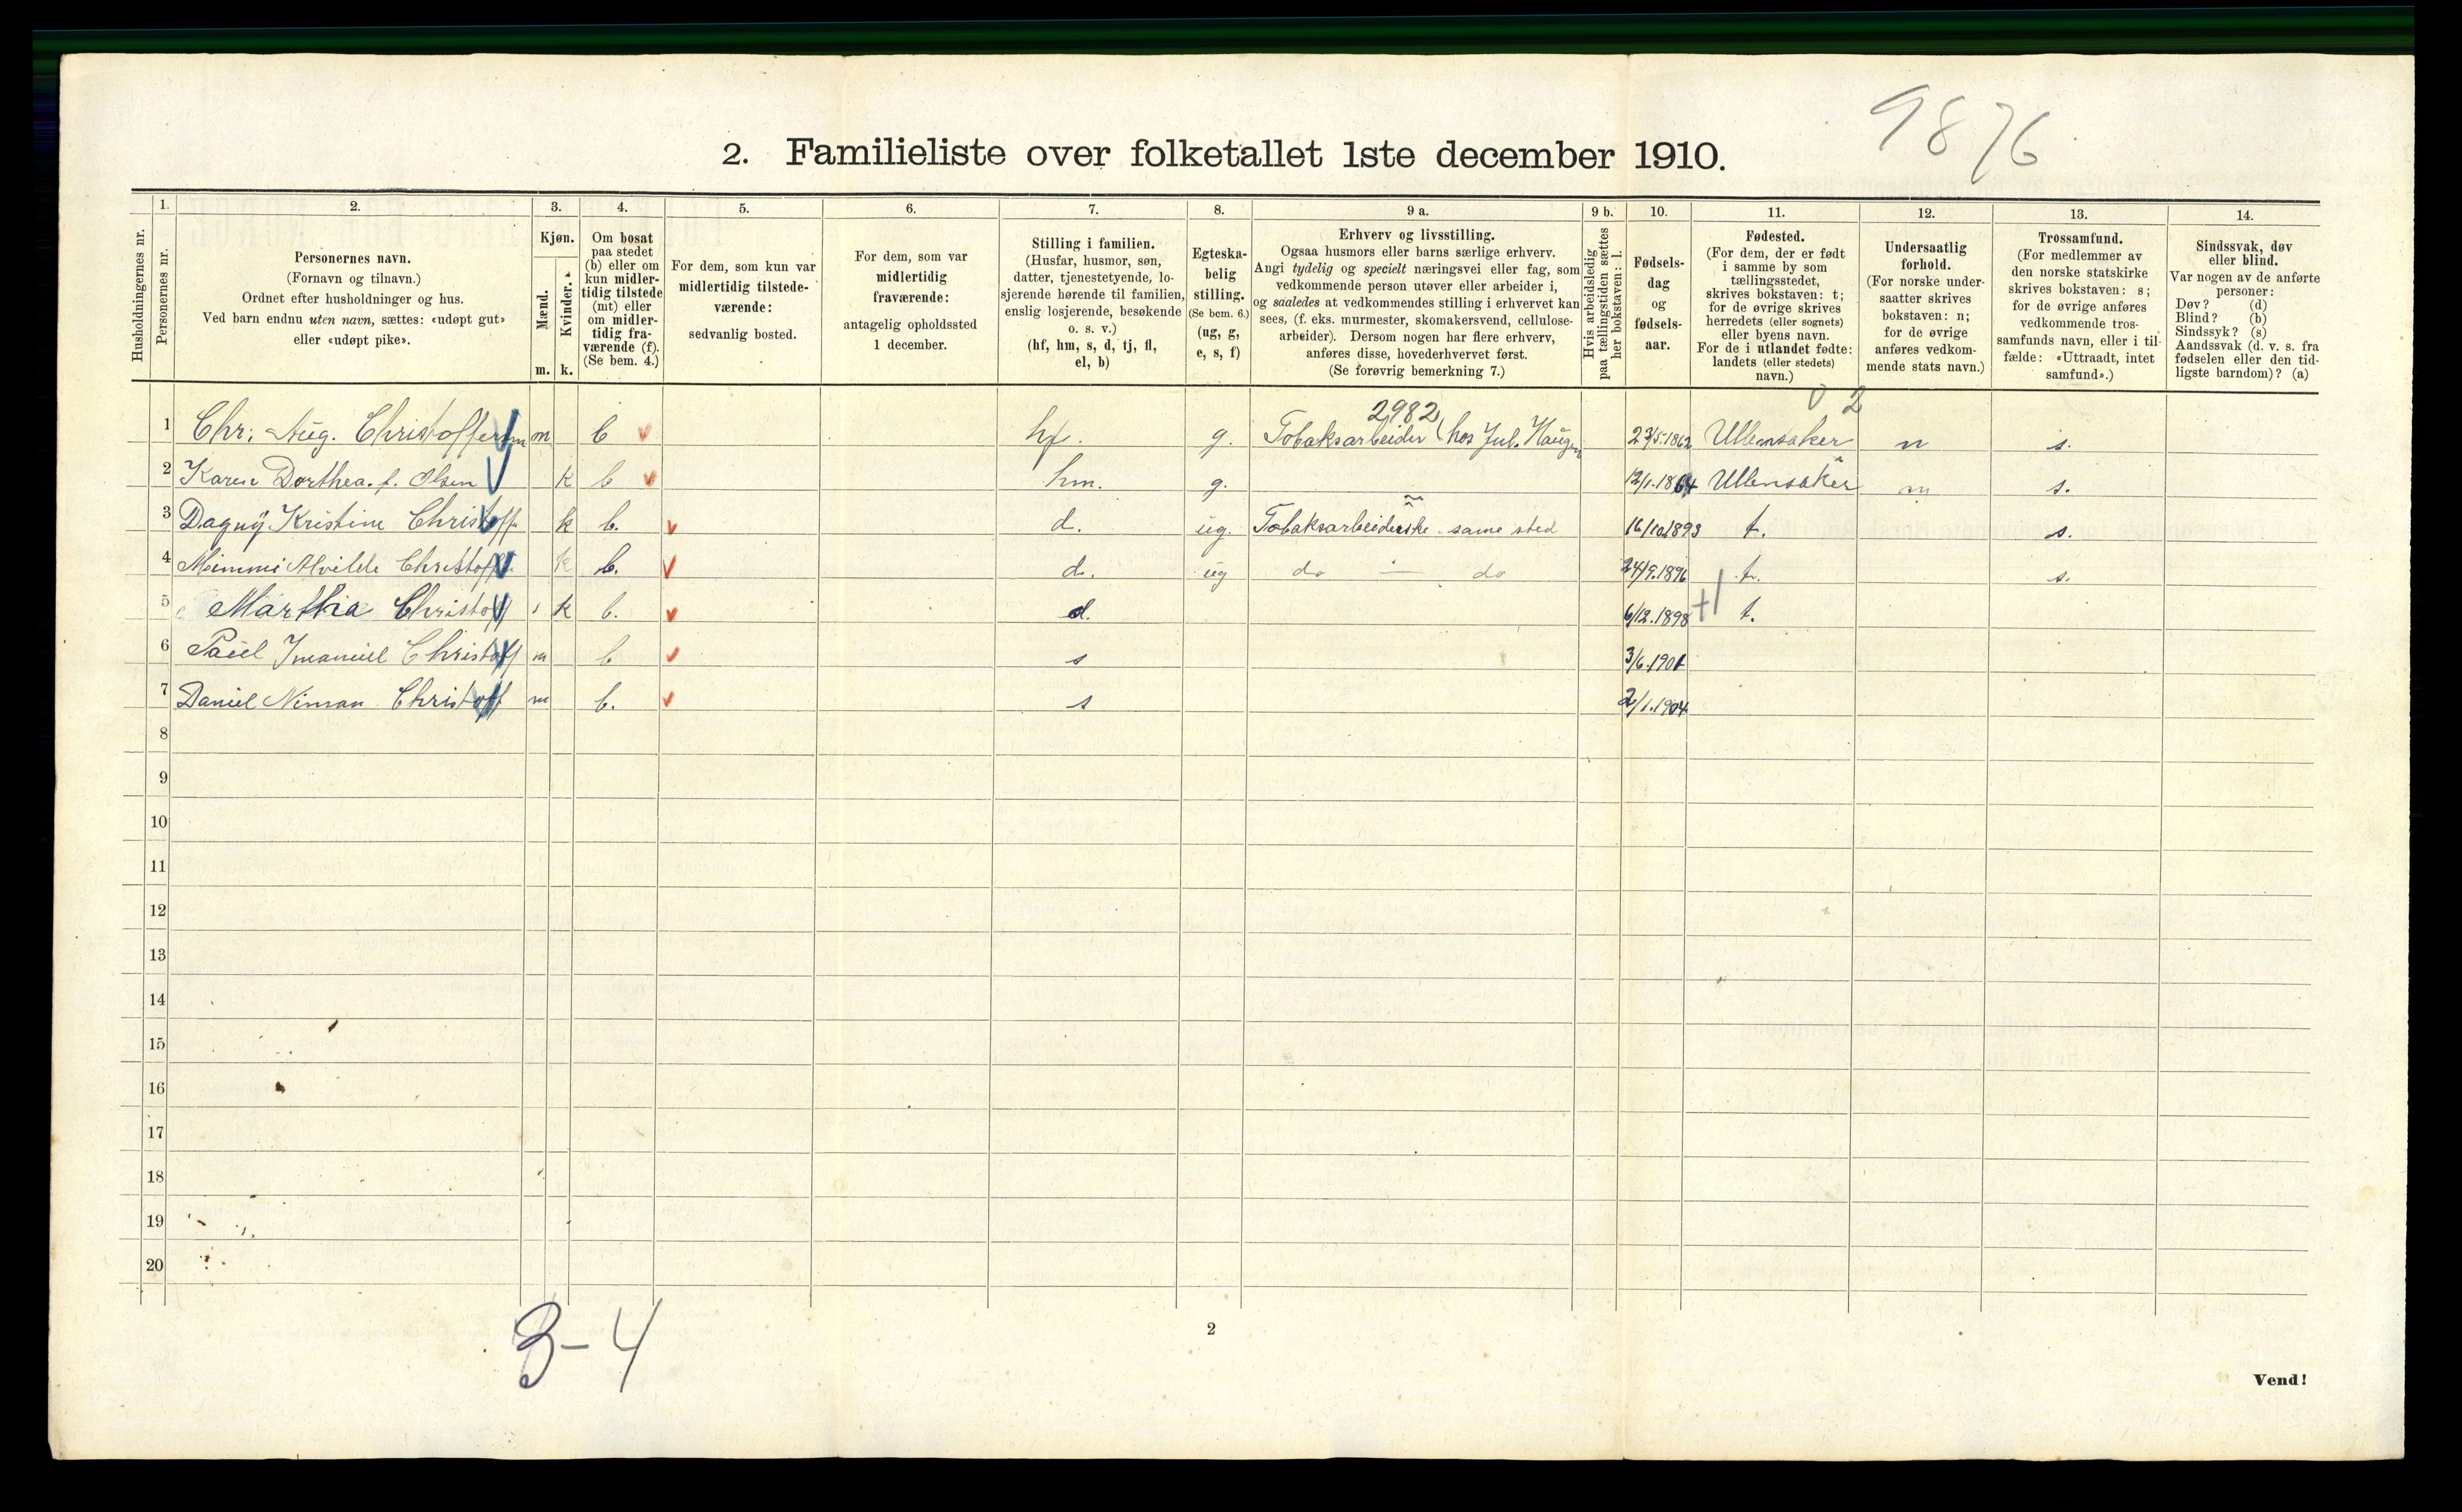 9876
2. Familieliste over folketallet 1ste december 1910.
Husholdningernes nr.
1.
Personernes nr.
2.
Personernes navn.
(Fornavn og tilnavn.)
Ordnet efter husholdninger og hus.
Ved barn endnu uten navn, sættes: «udøpt gut»
eller «udøpt pike».
3.
Kjøn.
Mænd.
Kvinder.
m. k.
4.
Om bosat
paa stedet
(b) eller om
kun midler-
tidig tilstede
(mt) eller
om midler-
tidig fra-
værende (f).
(Se bem. 4.)
5.
For dem, som kun var
midlertidig tilstede-
værende:
sedvanlig bosted.
6.
For dem, som var
midlertidig
fraværende:
antagelig opholdssted
1 december.
7.
Stilling i familien.
(Husfar, husmor, søn,
datter, tjenestetyende, lo-
sjerende hørende til familien,
enslig losjerende, besøkende
o. s. v.)
(hf, hm, s, d, tj, fl,
el, b)
8.
Egteska-
belig
stilling.
(Se bem. 6.)
(ug, g,
e, s, f)
9 a.
Erhverv og livsstilling.
Ogsaa husmors eller barns særlige erhverv.
Angi tydelig og specielt næringsvei eller fag, som
vedkommende person utøver eller arbeider i,
og saaledes at vedkommendes stilling i erhvervet kan
sees, (f. eks. murmester, skomakersvend, cellulose-
arbeider). Dersom nogen har flere erhverv,
anføres disse, hovederhvervet først.
(Se forøvrig bemerkning 7.)
9 b.
Hvis arbeidsledig
paa tællingstiden sættes
her bokstaven: l.
10.
Fødsels-
dag
og
fødsels-
aar.
11.
Fødested.
(For dem, der er født
i samme by som
tællingsstedet,
skrives bokstaven: t;
for de øvrige skrives
herredets (eller sognets)
eller byens navn.
For de i utlandet fødte:
landets (eller stedets)
navn.)
12.
Undersaatlig
forhold.
(For norske under-
saatter skrives
bokstaven: n;
for de øvrige
anføres vedkom-
mende stats navn.)
13.
Trossamfund.
(For medlemmer av
den norske statskirke
skrives bokstaven: s;
for de øvrige anføres
vedkommende tros-
samfunds navn, eller i til-
fælde: «Uttraadt, intet
samfund».)
14.
Sindssvak, døv
eller blind.
Var nogen av de anførte
personer:
Døv? (d)
Blind? (b)
Sindssyk? (s)
Aandssvak (d. v. s. fra
fødselen eller den tid-
ligste barndom)? (a)
2982 0 2
1 Chr: Aug. Christoffersen m b hf. g. Tobaksarbeider (hos Jul. Haugen 23/5.1862 Ullensaker n s.
2 Karen Dorthea. f. Olsen k b hm. g. 12/1.1864 Ullensaker n s.
3 Dagny Kristine Christoff k b. d. ug. Tobaksarbeiderske same sted 16/10.1893 t. s.
4 Mimmi Alvilde Christoff k b. d. ug do — do 24/9.1896 t. s.
5 Marthia Christoff k b. d. 6/12.1898 t.
6 Paul Imanuel Christoff m b s 3/6.1901
7 Daniel Niman Christoff m b. s 2/1.1904
8
9
10
11
12
13
14
15
16
17
18
19
20
3-4
2
Vend!